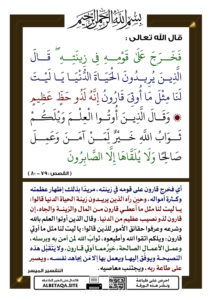 بسم الله الرحمن الرحيم
قال الله تعالى :
فَخَرَجَ عَلَىٰ قَوْمِهِ فِي زِينَتِهِ ۖ قَالَ
الَّذِينَ يُرِيدُونَ الْحَيَاةَ الدُّنْيَا يَا لَيْتَ
لَنَا مِثْلَ مَا أُوتِيَ قَارُونُ إِنَّهُ لَذُو حَظٍّ عَظِيمٍ
وَقَالَ الَّذِينَ أُوتُوا الْعِلْمَ وَيْلَكُمْ
ثَوَابُ اللَّهِ خَيْرٌ لِّمَنْ آمَنَ وَعَمِلَ
صَالِحًا وَلَا يُلَقَّاهَا إِلَّا الصَّابِرُونَ
(القصص : ٧٩ - ٨٠)
أي فخرج قارون على قومه في زينته، مريدًا بذلك إظهار عظمته
وكثرة أمواله، وحين رآه الذين يريدون زينة الحياة الدنيا قالوا:
يا ليت لنا مثل ما أُعطي قارون من المال والزينة والجاه، إن
قارون لذو نصيب عظيم من الدنيا. وقال الذين أوتوا العلم بالله
وشرعه وعرفوا حقائق الأمور للذين قالوا: يا ليت لنا مثل ما أوتي
قارون: ويلكم اتقوا الله وأطيعوه، ثواب الله لمن آمن به وبرسله،
وعمل الأعمال الصالحة، خيرٌ مما أوتي قارون، ولا يتقبل هذه
النصيحة ويوفَّق إليها ويعمل بها إلا من يجاهد نفسه، ويصبر
على طاعة ربه، ويجتنب معاصيه.
التفسير الميسر
ALBETAQA.SITE